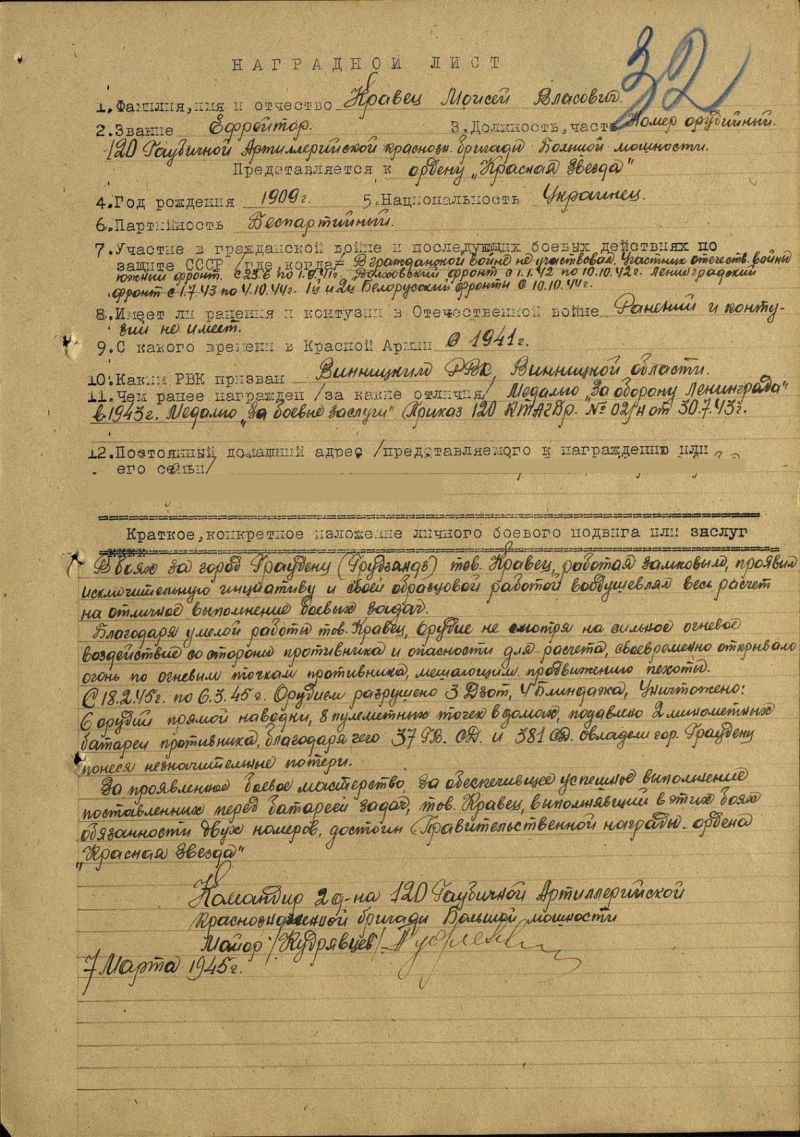 32
НАГРАДНОЙ ЛИСТ
1. Фамилия, имя и отчество Кравец Моисей Власович.
2. Звание Ефрейтор. 3. Должность, часть Номер орудийный.
120 Гаубичной Артиллерийской краснозн. бригады Большой мощности.
Представляется к ордену "Красная Звезда"
4. Год рождения 1909 г. 5. Национальность Украинец.
6. Партийность Беспартийный.
7. Участие в гражданской войне и последующих боевых действиях по
защите СССР /где, когда/ В гражданской войне не участвовал. Участник отечеств. войны
южный фронт. с Волховский фронт с 1.1.42 по 10.10.42г. Ленинградский
фронт с 1.7.43 по 4.10.44г. 1й и 2й Белорусский фронты с 10.10.44г.
8. Имеет ли ранения и контузии в Отечественной войне Ранений и конту-
зий не имеет.
9. С какого времени в Красной Армии с 1941 г.
10. Каким РВК призван Винницким РВК, Винницкой области.
11. Чем ранее награжден /за какие отличия/ Медалью "За оборону Ленинграда"
в 1943г. Медалью "За боевые заслуги" (Приказ 120 № 02/н от 30.7.43г.
12. Постоянный домашний адрес /представляемого к награждению или
его семьи/
Краткое, конкретное изложение личного боевого подвига или заслуг
В боях за город Грауденц (Грудзандз) тов. Кравец, работая замковым, проявил
исключительную инициативу и своей образцовой работой воодушевлял весь расчет
на отличное выполнение боевых задач.
Благодаря умелой работы тов. Кравец, Орудие не смотря на сильное огневое
воздействие со стороны противника и опасности для расчета, своевременно открывало
огонь по огневым точкам противника, мешающим продвижению пехоты.
С 18.2.45г. по 6.3.45г. Орудием разрушено 3 Дзот, 4 Блиндажа, Уничтожено:
6 орудий прямой наводки, 8 пулеметных точек в домах, подавлено 2 минометных
батареи противника, благодаря чего 37 Гв. СД. и 381 СД. овладели гор. Грауденц
понеся незначительные потери.
За проявленное боевое мастерство, за обеспечившее успешное выполнение
поставленных перед батареей задач, тов. Кравец, выполнявший в этих боях
обязанности двух номеров, достоин Правительственной награды - ордена
"Красная Звезда"
Командир 2 д-на 120 Гаубичной Артиллерийской
Краснознаменной бригады Большой мощности
Майор /Кудрявцев/
7 Марта 1945г.